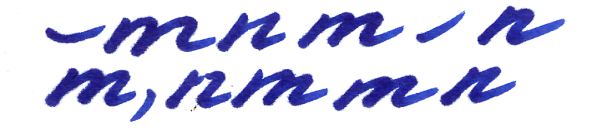 ~ m n m - n
m, n m m n